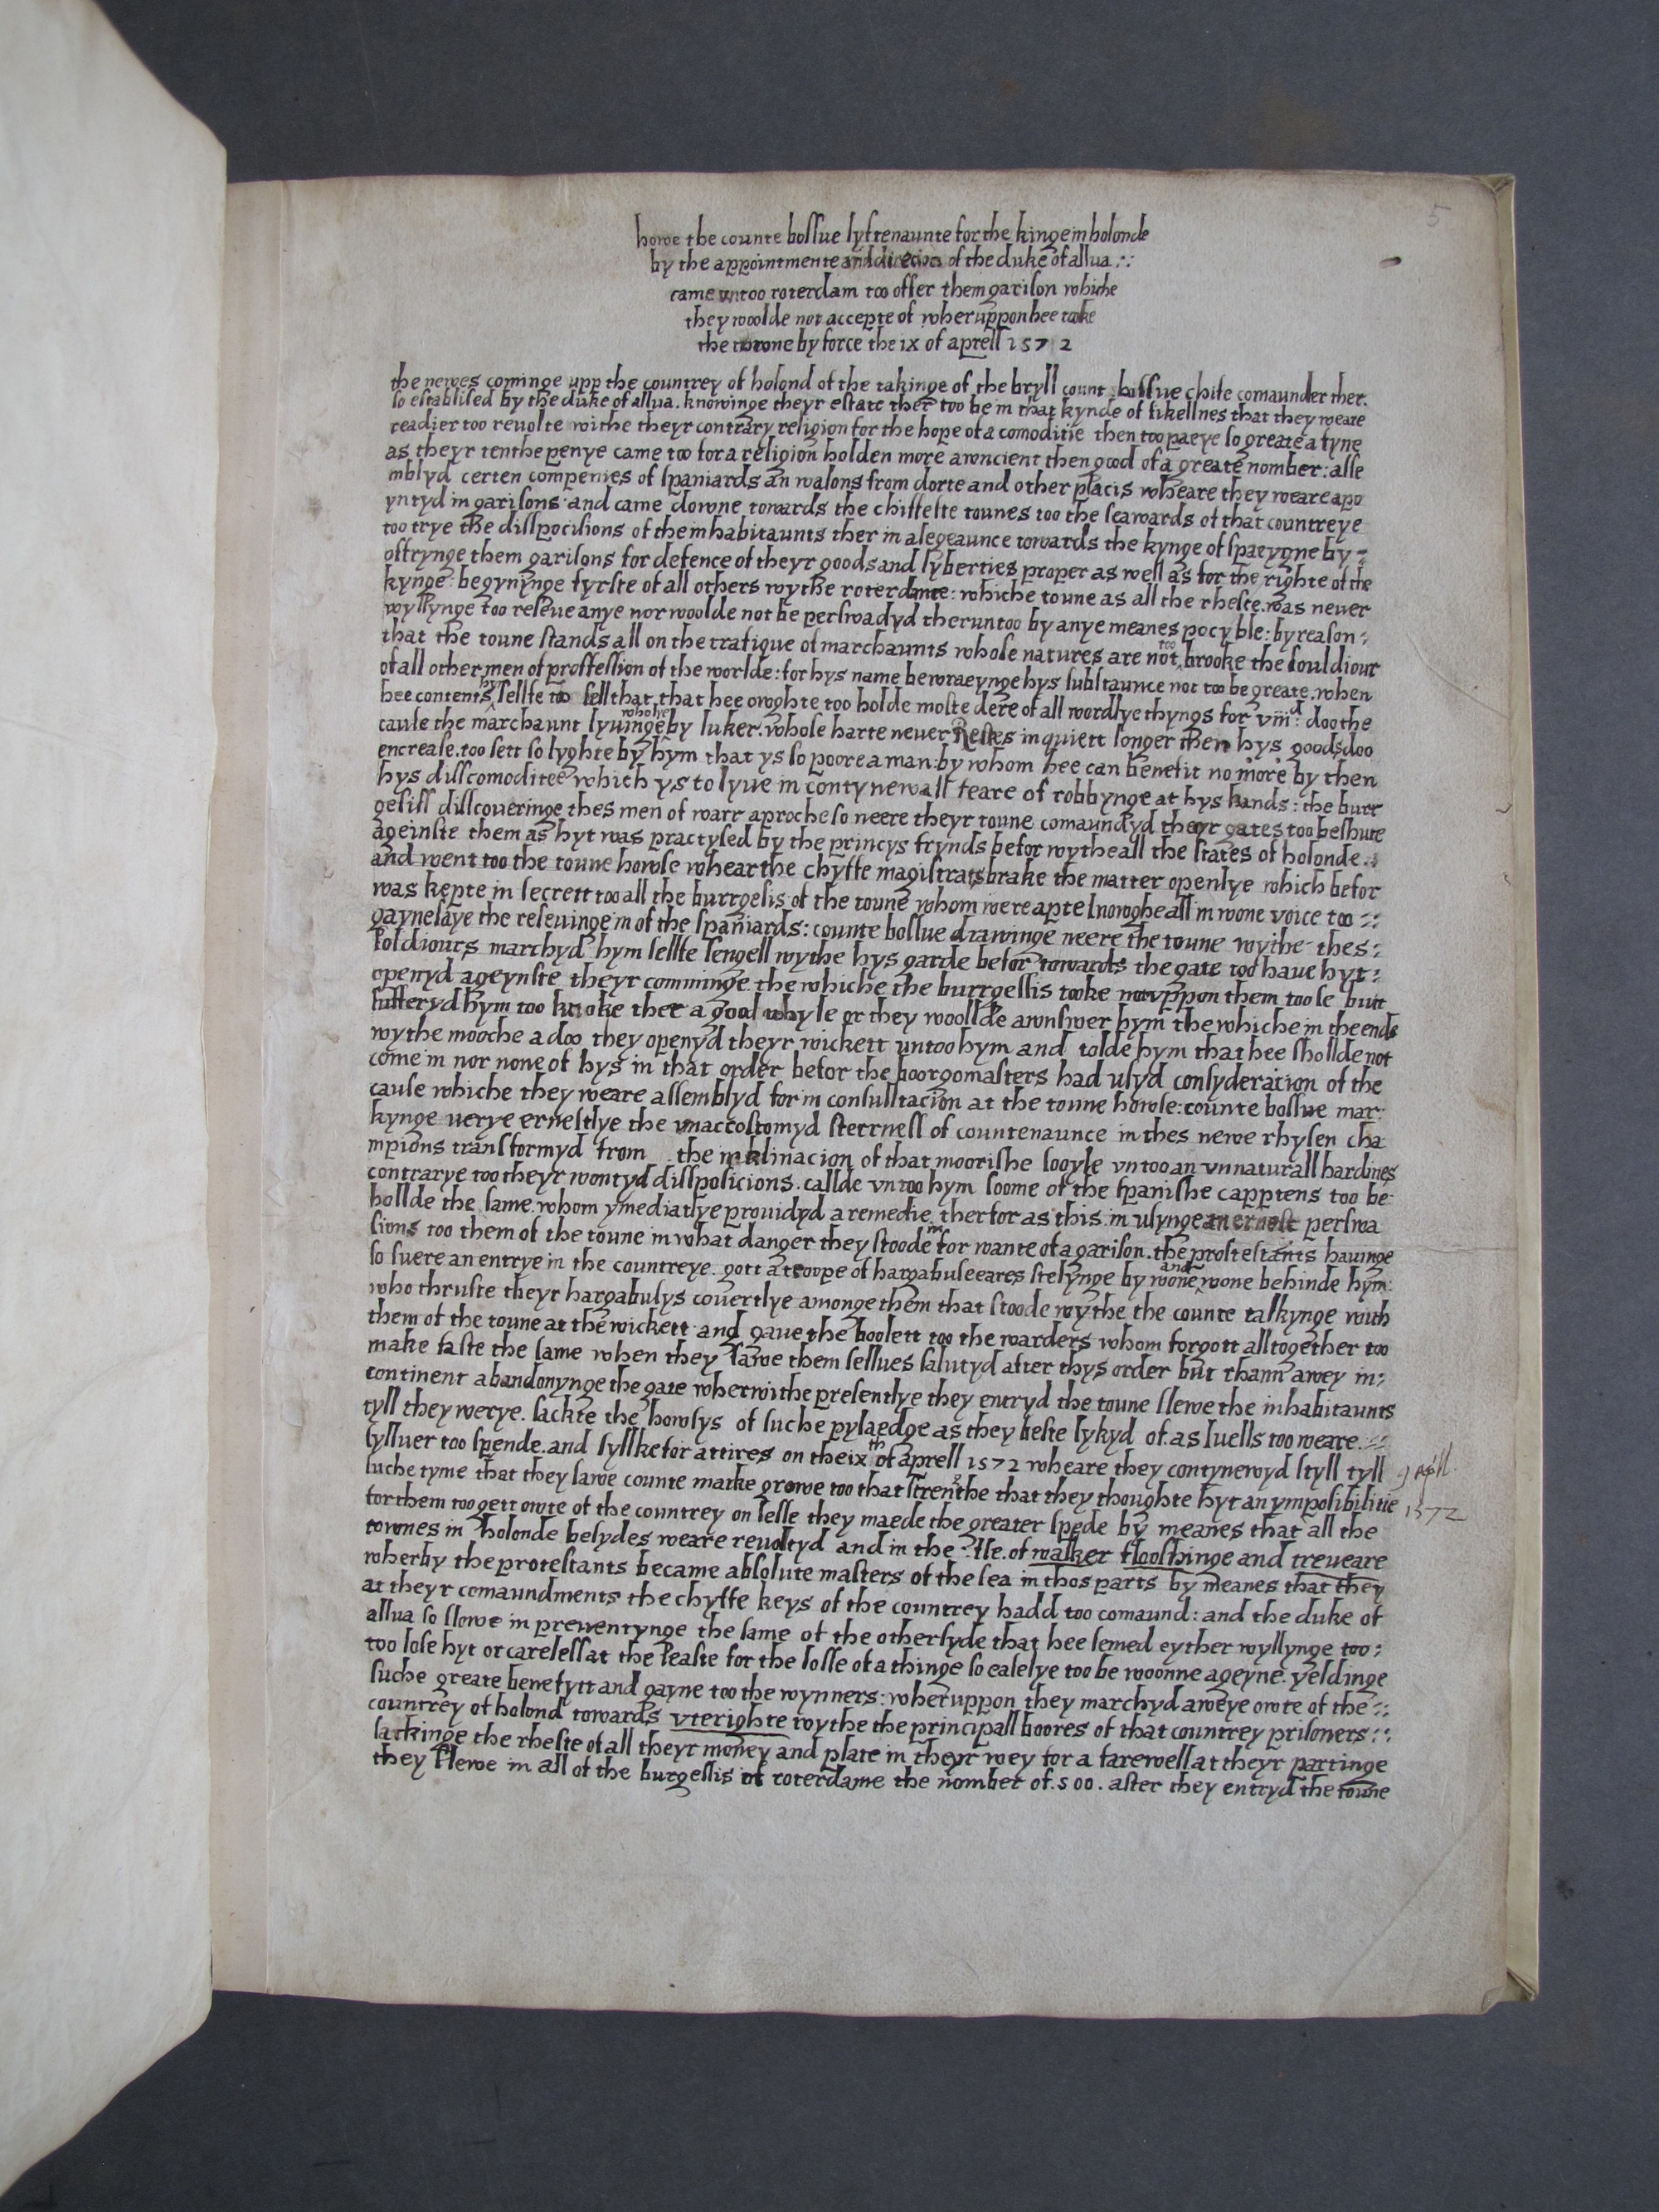 5
howe the counte bossue lyftenaunte for the kinge in holonde
by the appointmente and direcion of the duke of allua
came vntoo roterdam too offer them garison whiche
they woolde not accepte of wheruppon hee tooke
the towne by force the ix of aprell 1572
the newes cominge upp the countrey of holond of the takinge of the bryll count bossue chife comaunder ther.
so establised by the duke of allua. knowinge theyr estate ther too be in that kynde of fikellnes that they weare
readier too reuolte withe theyr contrary religion for the hope of a comoditie then too paeye so greate a fyne
as theyr tenthe penye came too for a religion holden more awncient then good of a greate nomber: asse
mblyd certen compenies of spaniards an walons from dorte and other placis wheare they weare apo
yntyd in garisons and came downe towards the chiffeste tounes too the seawards of that countreye
too trye the disspocisions of the inhabitaunts ther in alegeaunce towards the kynge of spaeygne by
offrynge them garisons for defence of theyr goods and lyberties proper as well as for the righte of the
kynge: begynynge fyrste of all others wythe roterdame: whiche toune as all the rheste. was neuer
wyllynge too reseue anye nor woolde not be perswadyd theruntoo by anye meanes pocyble: by reason
that the toune stands all on the trafique of marchaunts whose natures are not too brooke the souldiour
of all other men of proffession of the worlde: for hys name bewraeynge hys substaunce not too be greate. when
hee contents hys sellfe too sell that that hee owghte too holde moste dere of all wordlye thyngs for viiid: doo the
cause the marchaunt lyuinge wholye by luker. whose harte neuer Restes in quiett longer then hys goods doo
encrease. too sett so lyghte by hym that ys so poore a man: by whom hee can benefit no more by then
hys disscomoditee which ys to lyue in contynewall feare of robbynge at hys hands: the burr
gesiss disscoueringe thes men of warr aproche so neere theyr toune comaundyd theyr gates too be shute
ageinste them as hyt was practysed by the princys frynds befor wytheall the states of holonde.
and went too the toune howse whear the chyffe magistrats brake the matter openlye which befor
was kepte in secrett too all the burrgesis of the toune whom were apte Inowghe all in wone voice too
gaynesaye the reseuinge in of the spaniards: counte bossue drawinge neere the toune wythe thes
soldiours marchyd hym sellfe sengell wythe hys garde befor towards the gate too haue hyt
openyd ageynste theyr comminge. the whiche the burrgessis tooke not vppon them too se but
sufferyd hym too knoke ther a good whyle or they woollde awnswer hym the whiche in the ende
wythe mooche a doo they openyd theyr wickett untoo hym and tolde hym that hee shollde not
come in nor none of hys in that order befor the boorgomasters had usyd consyderacion of the
cause whiche they weare assemblyd for in consulltacion at the toune howse: counte bossue mar
kynge uerye ernestlye the vnaccostomyd sterness of countenaunce in thes newe rhysen cha
mpions transformyd from the inklinacion of that moorishe sooyle vntoo an vnnaturall hardines
contrarye too theyr wontyd disspoсicions. callde vntoo hym soome of the spanishe capptens too be
hollde the same. whom ymediatlye prouidyd a remedie therfor as this. in usynge an ernest perswa
sions too them of the toune in what danger they stoode in for wante of a garison. the protestants hauinge
so suere an entrye in the countreye. gott a troope of hargabuseeares stelynge by wone and wone behinde hym
who thruste theyr hargabusys couertlye amonge them that stoode wythe the counte talkynge with
them of the toune at the wickett and gaue the boolett too the warders whom forgott alltogether too
make faste the same when they sawe them sellues salutyd after thys order but rhann awey in
continent abandonynge the gate wherwithe presentlye they entryd the toune slewe the inhabitaunts
tyll they werye. sackte the howsys of suche pylaedge as they beste lykyd of. as Iuells too weare.
syllver too spende. and syllke for attires on the ixth of aprell 1572 wheare they contynewyd styll tyll
suche tyme that they sawe counte marke growe too that strengthe that they thoughte hyt an ymposibilitie
9 Aprill
1572
for them too gett owte of the countrey on lesse they maede the greater spede by meanes that all the
townes in holonde besydes weare reuoltyd and in the Ile. of walker flooshinge and treueare
wherby the protestants became absolute masters of the sea in thos parts by meanes that they
at theyr comaundments the chyffe keys of the countrey hadd too comaund: and the duke of
allua so slowe in preuentynge the same of the other syde that hee semed eyther wyllynge too
too lose hyt or careless at the leaste for the losse of a thinge so easelye too be woonne ageyne. yeldinge
suche greate benefytt and gayne too the wynners: wheruppon they marchyd aweye owte of the
countrey of holond towards vterighte wythe the principall boores of that countrey prisoners
sackinge the rheste of all theyr money and plate in theyr wey for a farewell at theyr partinge
they slewe in all of the burgessis of roterdame the nomber of. 500. after they entryd the toune